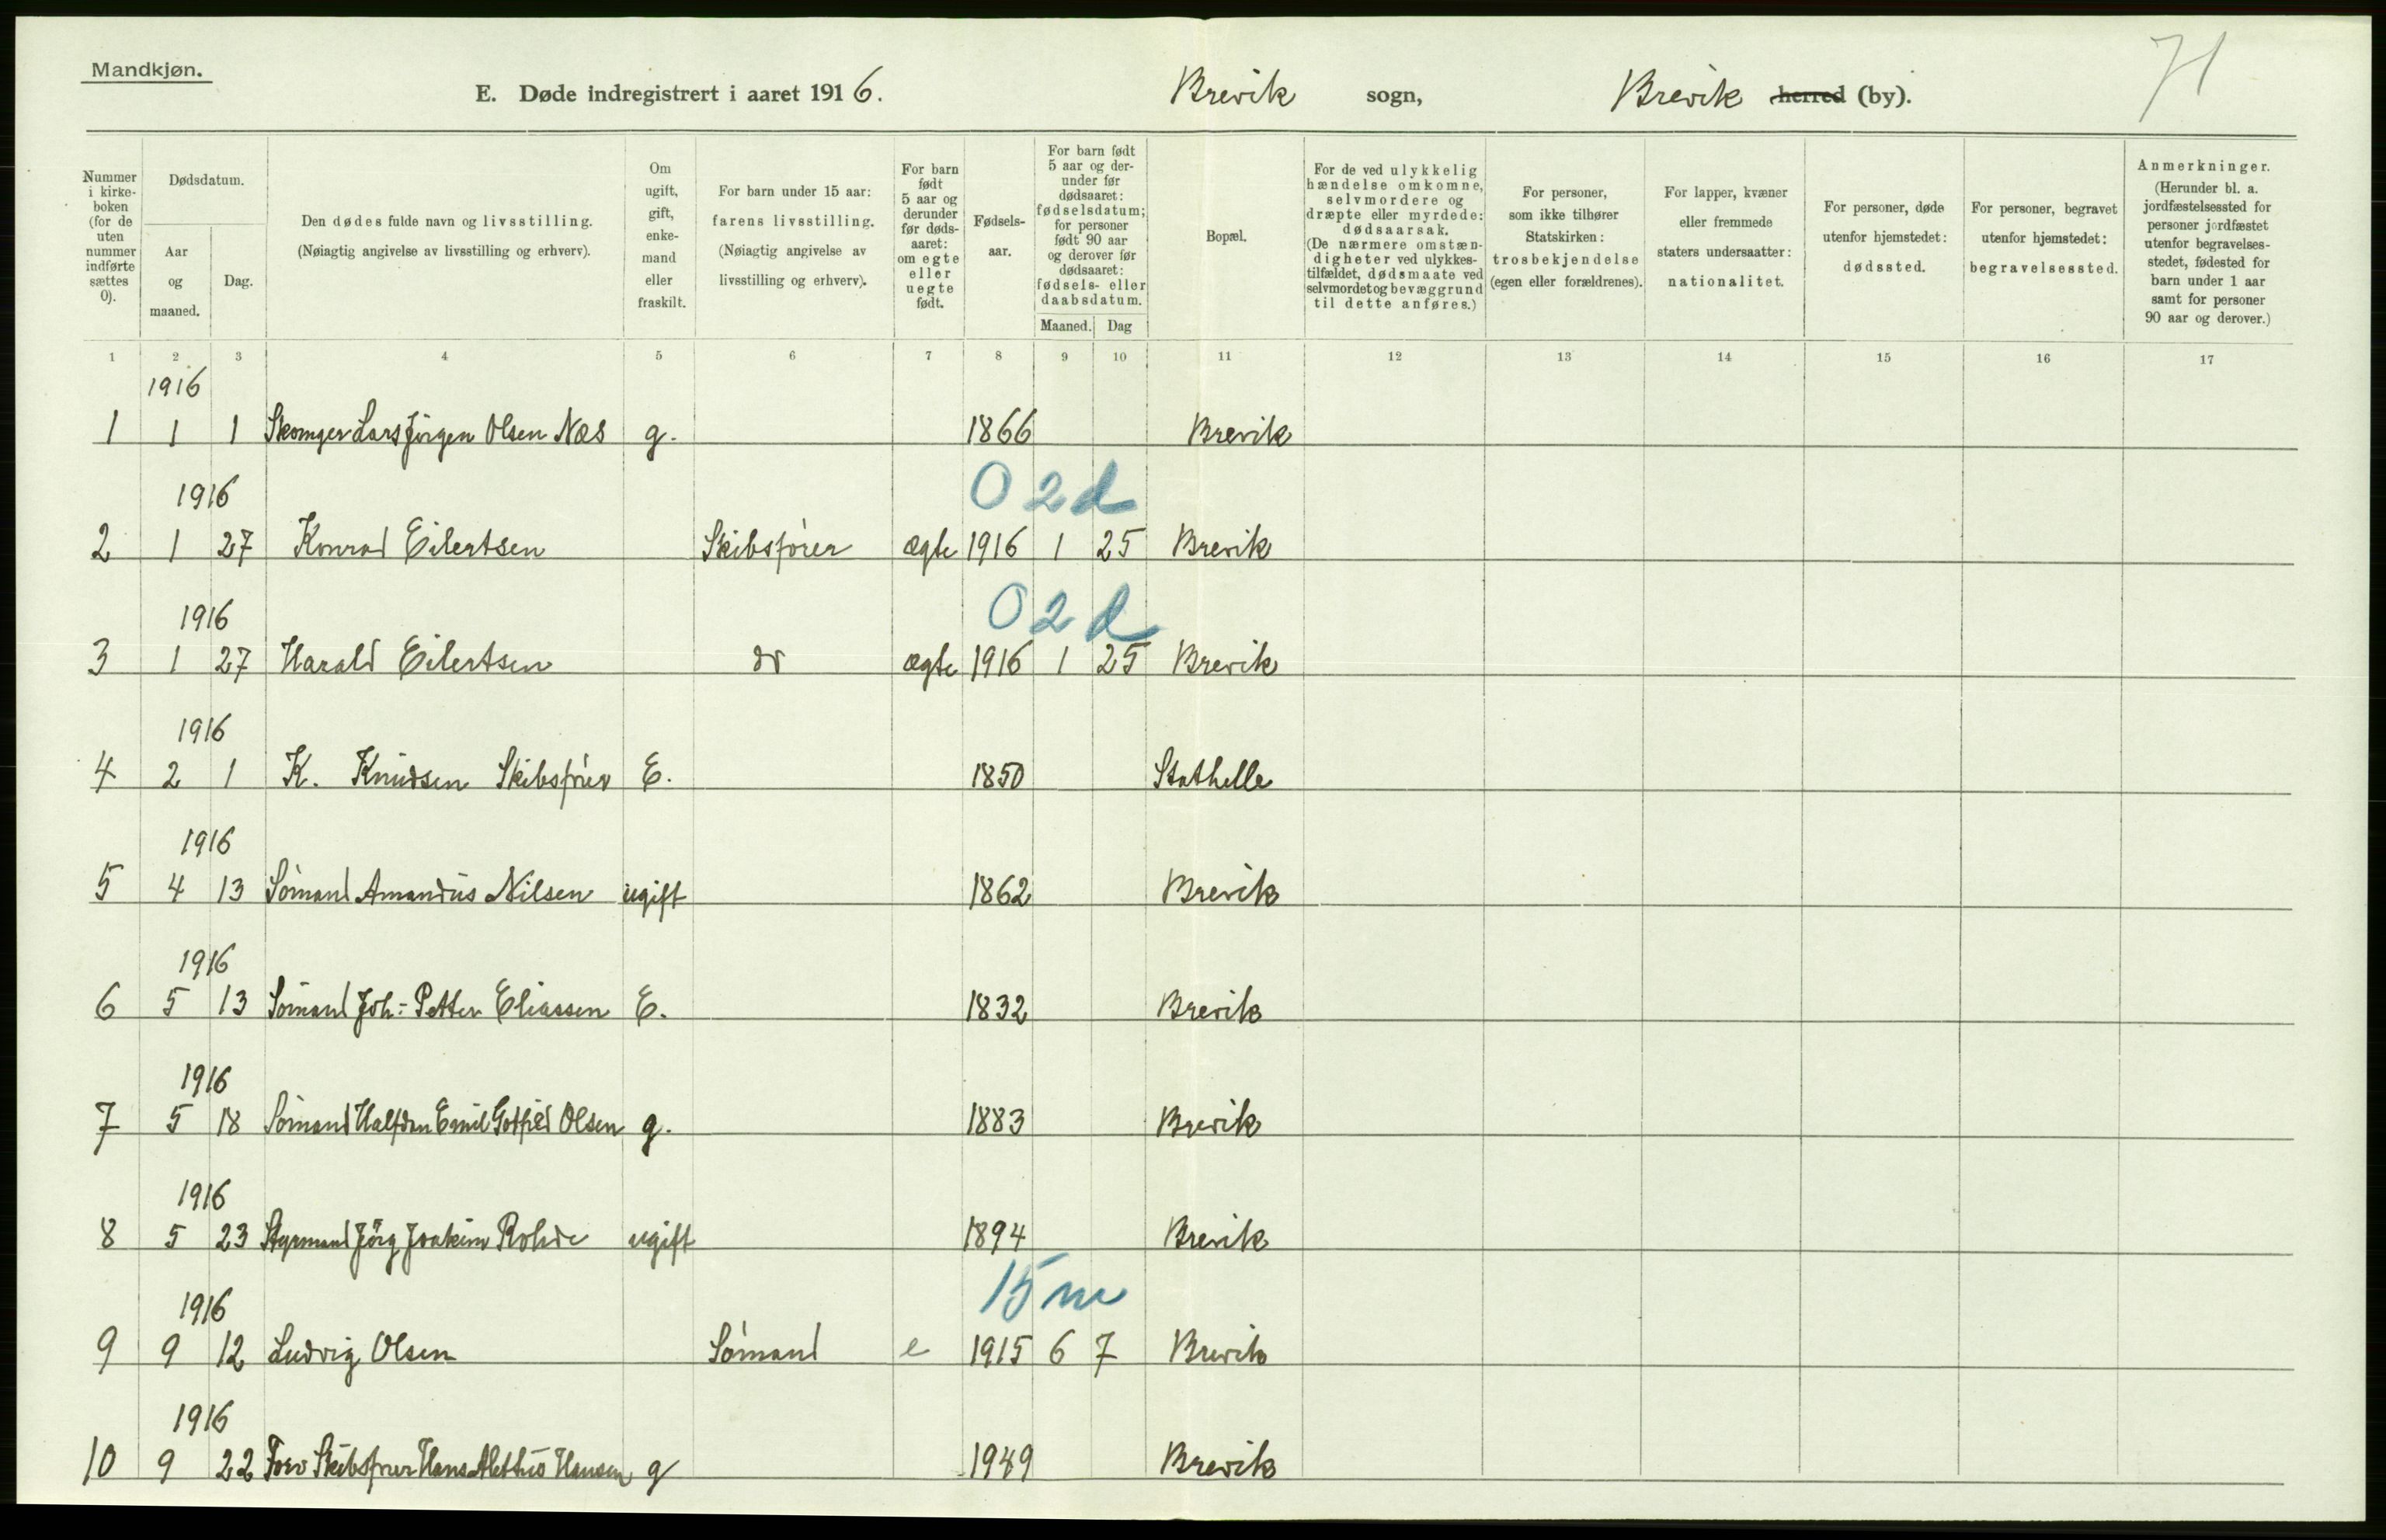 Mandkjøn.
E. Døde indregistrert i aaret 1916. Brevik sogn, Brevik herred (by).
71
Nummer i kirkeboken (for de uten nummer indførte sættes 0).
Dødsdatum.
Aar og maaned.
Dag.
Den dødes fulde navn og livsstilling.
(Nøiagtig angivelse av livsstilling og erhverv).
Om ugift, gift, enkemand eller fraskilt.
For barn under 15 aar: farens livsstilling.
(Nøiagtig angivelse av livsstilling og erhverv).
For barn født 5 aar og derunder før dødsaaret: om egte eller uegte født.
Fødselsaar.
For barn født 5 aar og derunder før dødsaaret: fødselsdatum; for personer født 90 aar og derover før dødsaaret: fødsels- eller daabsdatum.
Maaned. Dag
Bopæl.
For de ved ulykkelig hændelse omkomne, selvmordere og dræpte eller myrdede: dødsaarsak.
(De nærmere omstændigheter ved ulykkestilfældet, dødsmaate ved selvmordet og bevæggrund til dette anføres.)
For personer, som ikke tilhører Statskirken: trosbekjendelse (egen eller forældrenes).
For lapper, kvæner eller fremmede staters undersaatter: nationalitet.
For personer, døde utenfor hjemstedet: dødssted.
For personer, begravet utenfor hjemstedet: begravelsessted.
Anmerkninger.
(Herunder bl. a. jordfæstelsessted for personer jordfæstet utenfor begravelsesstedet, fødested for barn under 1 aar samt for personer 90 aar og derover.)
1 2 3 4 5 6 7 8 9 10 11 12 13 14 15 16 17
1916
1 1 1 Lars Jörgen Olsen Næs g. 1866 Brevik
1916 0 2 d
2 1 27 Konrad Eilertsen Skibsfører ægte 1916 1 25 Brevik
1916 0 2 d
3 1 27 Harald Eilertsen do ægte 1916 1 25 Brevik
1916
4 2 1 K. Knudsen Skibsfører E. 1850 Stathelle
1916
5 4 13 Sömand Amandus Nilsen ugift 1862 Brevik
1916
6 5 13 Sömand Joh: Petter Eliassen E. 1832 Brevik
1916
7 5 18 Sömand Halfdan Emil Gotfred Olsen g. 1883 Brevik
1916
8 5 23 Styrmand Jörg Joakim Rohde ugift 1894 Brevik
1916 15 m
9 9 12 Ludvig Olsen Sömand e 1915 6 7 Brevik
1916
10 9 22 Skibsfører Hans Hansen g Brevik